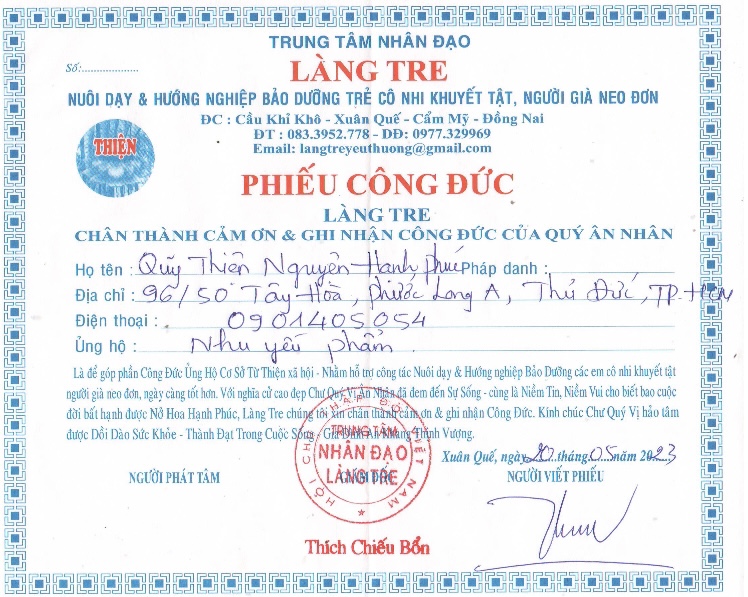 TRUNG TÂM NHÂN ĐẠO
Số:....................
LÀNG TRE
NUÔI DẠY & HƯỚNG NGHIỆP BẢO DƯỠNG TRẺ CÔ NHI KHUYẾT TẬT, NGƯỜI GIÀ NEO ĐƠN
ĐC : Cầu Khỉ Khô - Xuân Quế - Cẩm Mỹ - Đồng Nai
ĐT : 083.3952.778 - DĐ: 0977.329969
Email: langtreyeuthuong@gmail.com
THIỆN
PHIẾU CÔNG ĐỨC
LÀNG TRE
CHÂN THÀNH CẢM ƠN & GHI NHẬN CÔNG ĐỨC CỦA QUÝ ÂN NHÂN
Họ tên : Quỹ Thiện Nguyện Hạnh phúc Pháp danh :
Địa chỉ : 96/50 Tây Hoà, Phước Long A, Thủ Đức, TP. HCM
Điện thoại : 0901405054
Ủng hộ : Nhu yếu phẩm.
Là để góp phần Công Đức Ủng Hộ Cơ Sở Từ Thiện xã hội - Nhằm hỗ trợ công tác Nuôi dạy & Hướng nghiệp Bảo Dưỡng các em cô nhi khuyết tật
người già neo đơn, ngày càng tốt hơn. Với nghĩa cử cao đẹp Chư Quý Vị Ân Nhân đã đem đến Sự Sống - cùng là Niềm Tin, Niềm Vui cho biết bao cuộc
đời bất hạnh được Nở Hoa Hạnh Phúc, Làng Tre chúng tôi xin chân thành cảm ơn & ghi nhận Công Đức. Kính chúc Chư Quý Vị hảo tâm
được Dồi Dào Sức Khỏe - Thành Đạt Trong Cuộc Sống - Gia Đình An Khang Thịnh Vượng.
Xuân Quế, ngày 20 tháng 05 năm 2023
NGƯỜI PHÁT TÂM
GIÁM ĐỐC
NGƯỜI VIẾT PHIẾU
HỘI CHỮ THẬP ĐỎ VIỆT NAM
TRUNG TÂM
NHÂN ĐẠO
LÀNG TRE
Thích Chiếu Bổn